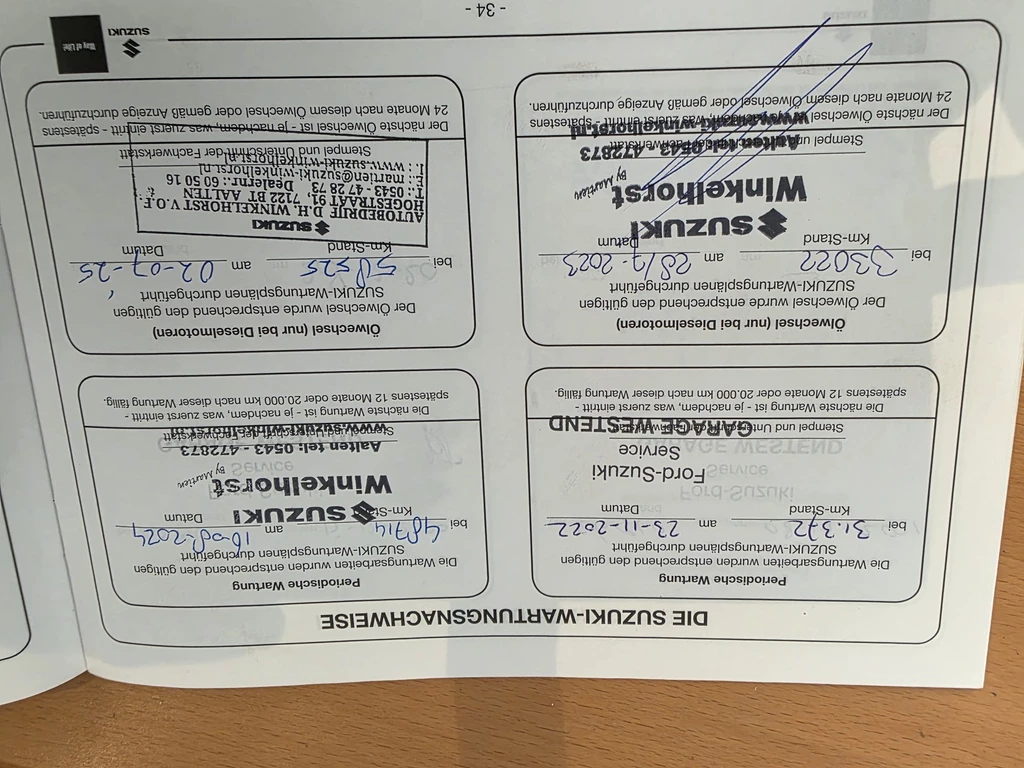 DIE SUZUKI-WARTUNGSNACHWEISE
Periodische Wartung
Die Wartungsarbeiten wurden entsprechend den gültigen
SUZUKI-Wartungsplänen durchgeführt
bei 31.372 am 23-11-2022
Km-Stand Datum
Ford-Suzuki
Service
GARAGE WESTEND
Stempel und Unterschrift der Fachwerkstatt
Die nächste Wartung ist - je nachdem, was zuerst eintritt -
spätestens 12 Monate oder 20.000 km nach dieser Wartung fällig.
Periodische Wartung
Die Wartungsarbeiten wurden entsprechend den gültigen
SUZUKI-Wartungsplänen durchgeführt
bei 48714 am 10-08-2024
Km-Stand Datum
SUZUKI
Winkelhorst
By Martien
Aalten tel: 0543 - 472873
www.suzuki-winkelhorst.nl
Stempel und Unterschrift der Fachwerkstatt
Die nächste Wartung ist - je nachdem, was zuerst eintritt -
spätestens 12 Monate oder 20.000 km nach dieser Wartung fällig.
Ölwechsel (nur bei Dieselmotoren)
Der Ölwechsel wurde entsprechend den gültigen
SUZUKI-Wartungsplänen durchgeführt
bei 33022 am 28/7-2023
Km-Stand Datum
SUZUKI
Winkelhorst
By Martien
Aalten tel: 0543 - 472873
www.suzuki-winkelhorst.nl
Stempel und Unterschrift der Fachwerkstatt
Der nächste Ölwechsel ist - je nachdem, was zuerst eintritt - spätestens
24 Monate nach diesem Ölwechsel oder gemäß Anzeige durchzuführen.
Ölwechsel (nur bei Dieselmotoren)
Der Ölwechsel wurde entsprechend den gültigen
SUZUKI-Wartungsplänen durchgeführt
bei am 02-07-25
Km-Stand Datum
SUZUKI
AUTOBEDRIJF D.H. WINKELHORST V.O.F.
HOGESTRAAT 91, 7122 BT AALTEN
T.: 0543 - 47 28 73 Dealernr.: 60 50 16
E.: martien@suzuki-winkelhorst.nl
I.: www.suzuki-winkelhorst.nl
Stempel und Unterschrift der Fachwerkstatt
Der nächste Ölwechsel ist - je nachdem, was zuerst eintritt - spätestens
24 Monate nach diesem Ölwechsel oder gemäß Anzeige durchzuführen.
SUZUKI
Way of Life!
- 34 -